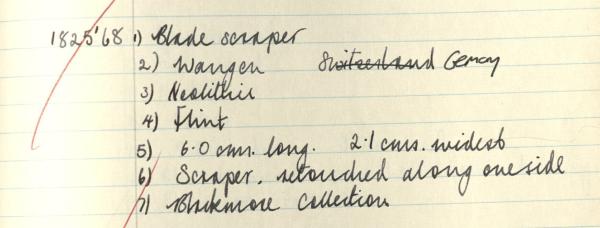 1825'68 1) Blade scraper
2) Wangen Switzerland Gemany
3) Neolithic
4) Flint
5) 6.0 cms. long. 2.1 cms. widest
6) Scraper. retouched along one side
7) Blackmore Collection